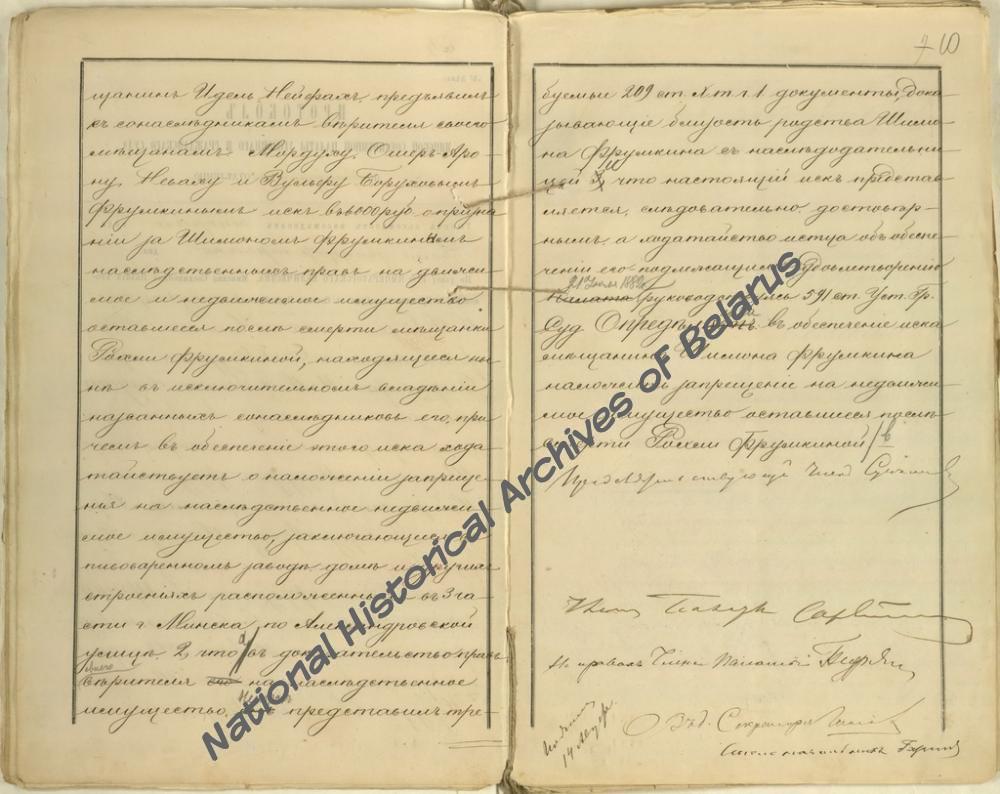 щанинъ Идель Нейфахъ, предъявилъ
къ сонаслѣдникамъ вѣрителя своего
мѣщанамъ Мордуху, Ошеръ-Аро-
ну, Неваху и Вульфу Боруховымъ
Фрумкинымъ искъ въ 6000 руб. о призна-
ніи за Шимономъ Фрумкинымъ
наслѣдственныхъ правъ на движи-
мое и недвижимое имущество
оставшееся послѣ смерти мѣщанки
Рохли Фрумкиной, находящееся ны-
нѣ въ исключительномъ владѣніи
названныхъ сонаслѣдниковъ его, при-
чемъ въ обезпеченіе этого иска хода-
тайствуетъ о наложеніи запреще-
нія на наслѣдственное недвижи-
мое имущество, заключающееся въ
пивоваренномъ заводѣ, домѣ и другихъ
строеніяхъ расположенныхъ въ 3 ча-
сти г. Минска, по Александровской
улицѣ. 2, что въ доказательство правъ
своего
вѣрителя на наслѣдственное
имущество, представилъ тре-
10
буемыи 209 ст. X т. ч. 1 документы, Дока-
зывающіе близость родства Шимо-
на Фрумкина съ наслѣдодательни-
цей и 3, что настоящій искъ представ-
ляется, слѣдовательно, достовѣр-
нымъ, а ходатайство истца объ обезпе-
ченіи его подлежащимъ удовлетворенію
21 Іюля 1882 г.
Палата Руководствуясь 591 ст. Уст. Гр.
Суд. Опредѣляетъ въ обезпеченіе иска
мѣщанина Шимона Фрумкина
наложить запрещеніе на недвижи-
мое имущество оставшееся послѣ
смерти Рохли Фрумкиной
Предсѣдательствующій Членъ
Члены
На правахъ Члена Палаты
За Секретаря
14 Авгу
National Historical Archives of Belarus